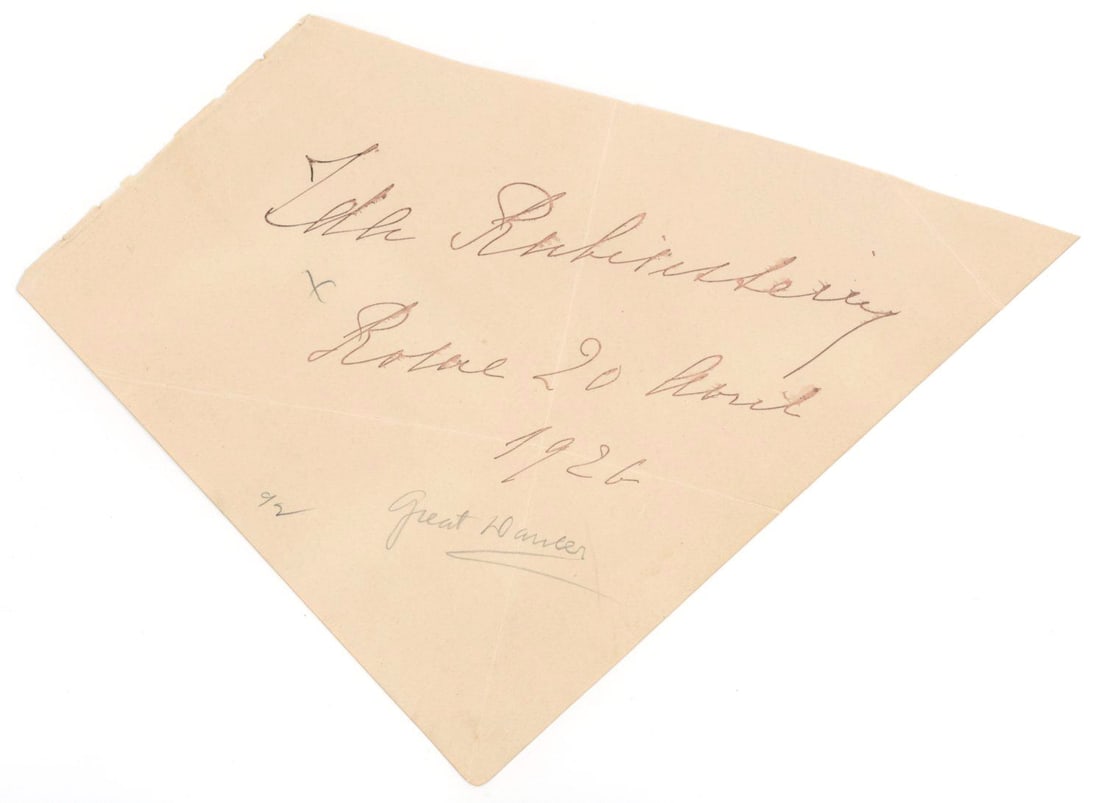 Ida Rubinstein
x
Rome 20 April
1926
92
Great Dancer